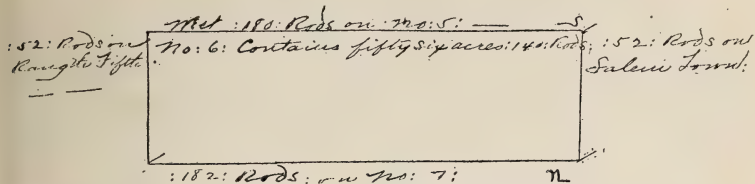 Met :180: Rods on :No: 5: — S
:52: Rods on
Raughte Fifth
— —
No: 6: Contains fifty six acres: 140: Rods,
:52: Rods on
Salem Town:
:182: Rods: on No: 7: N